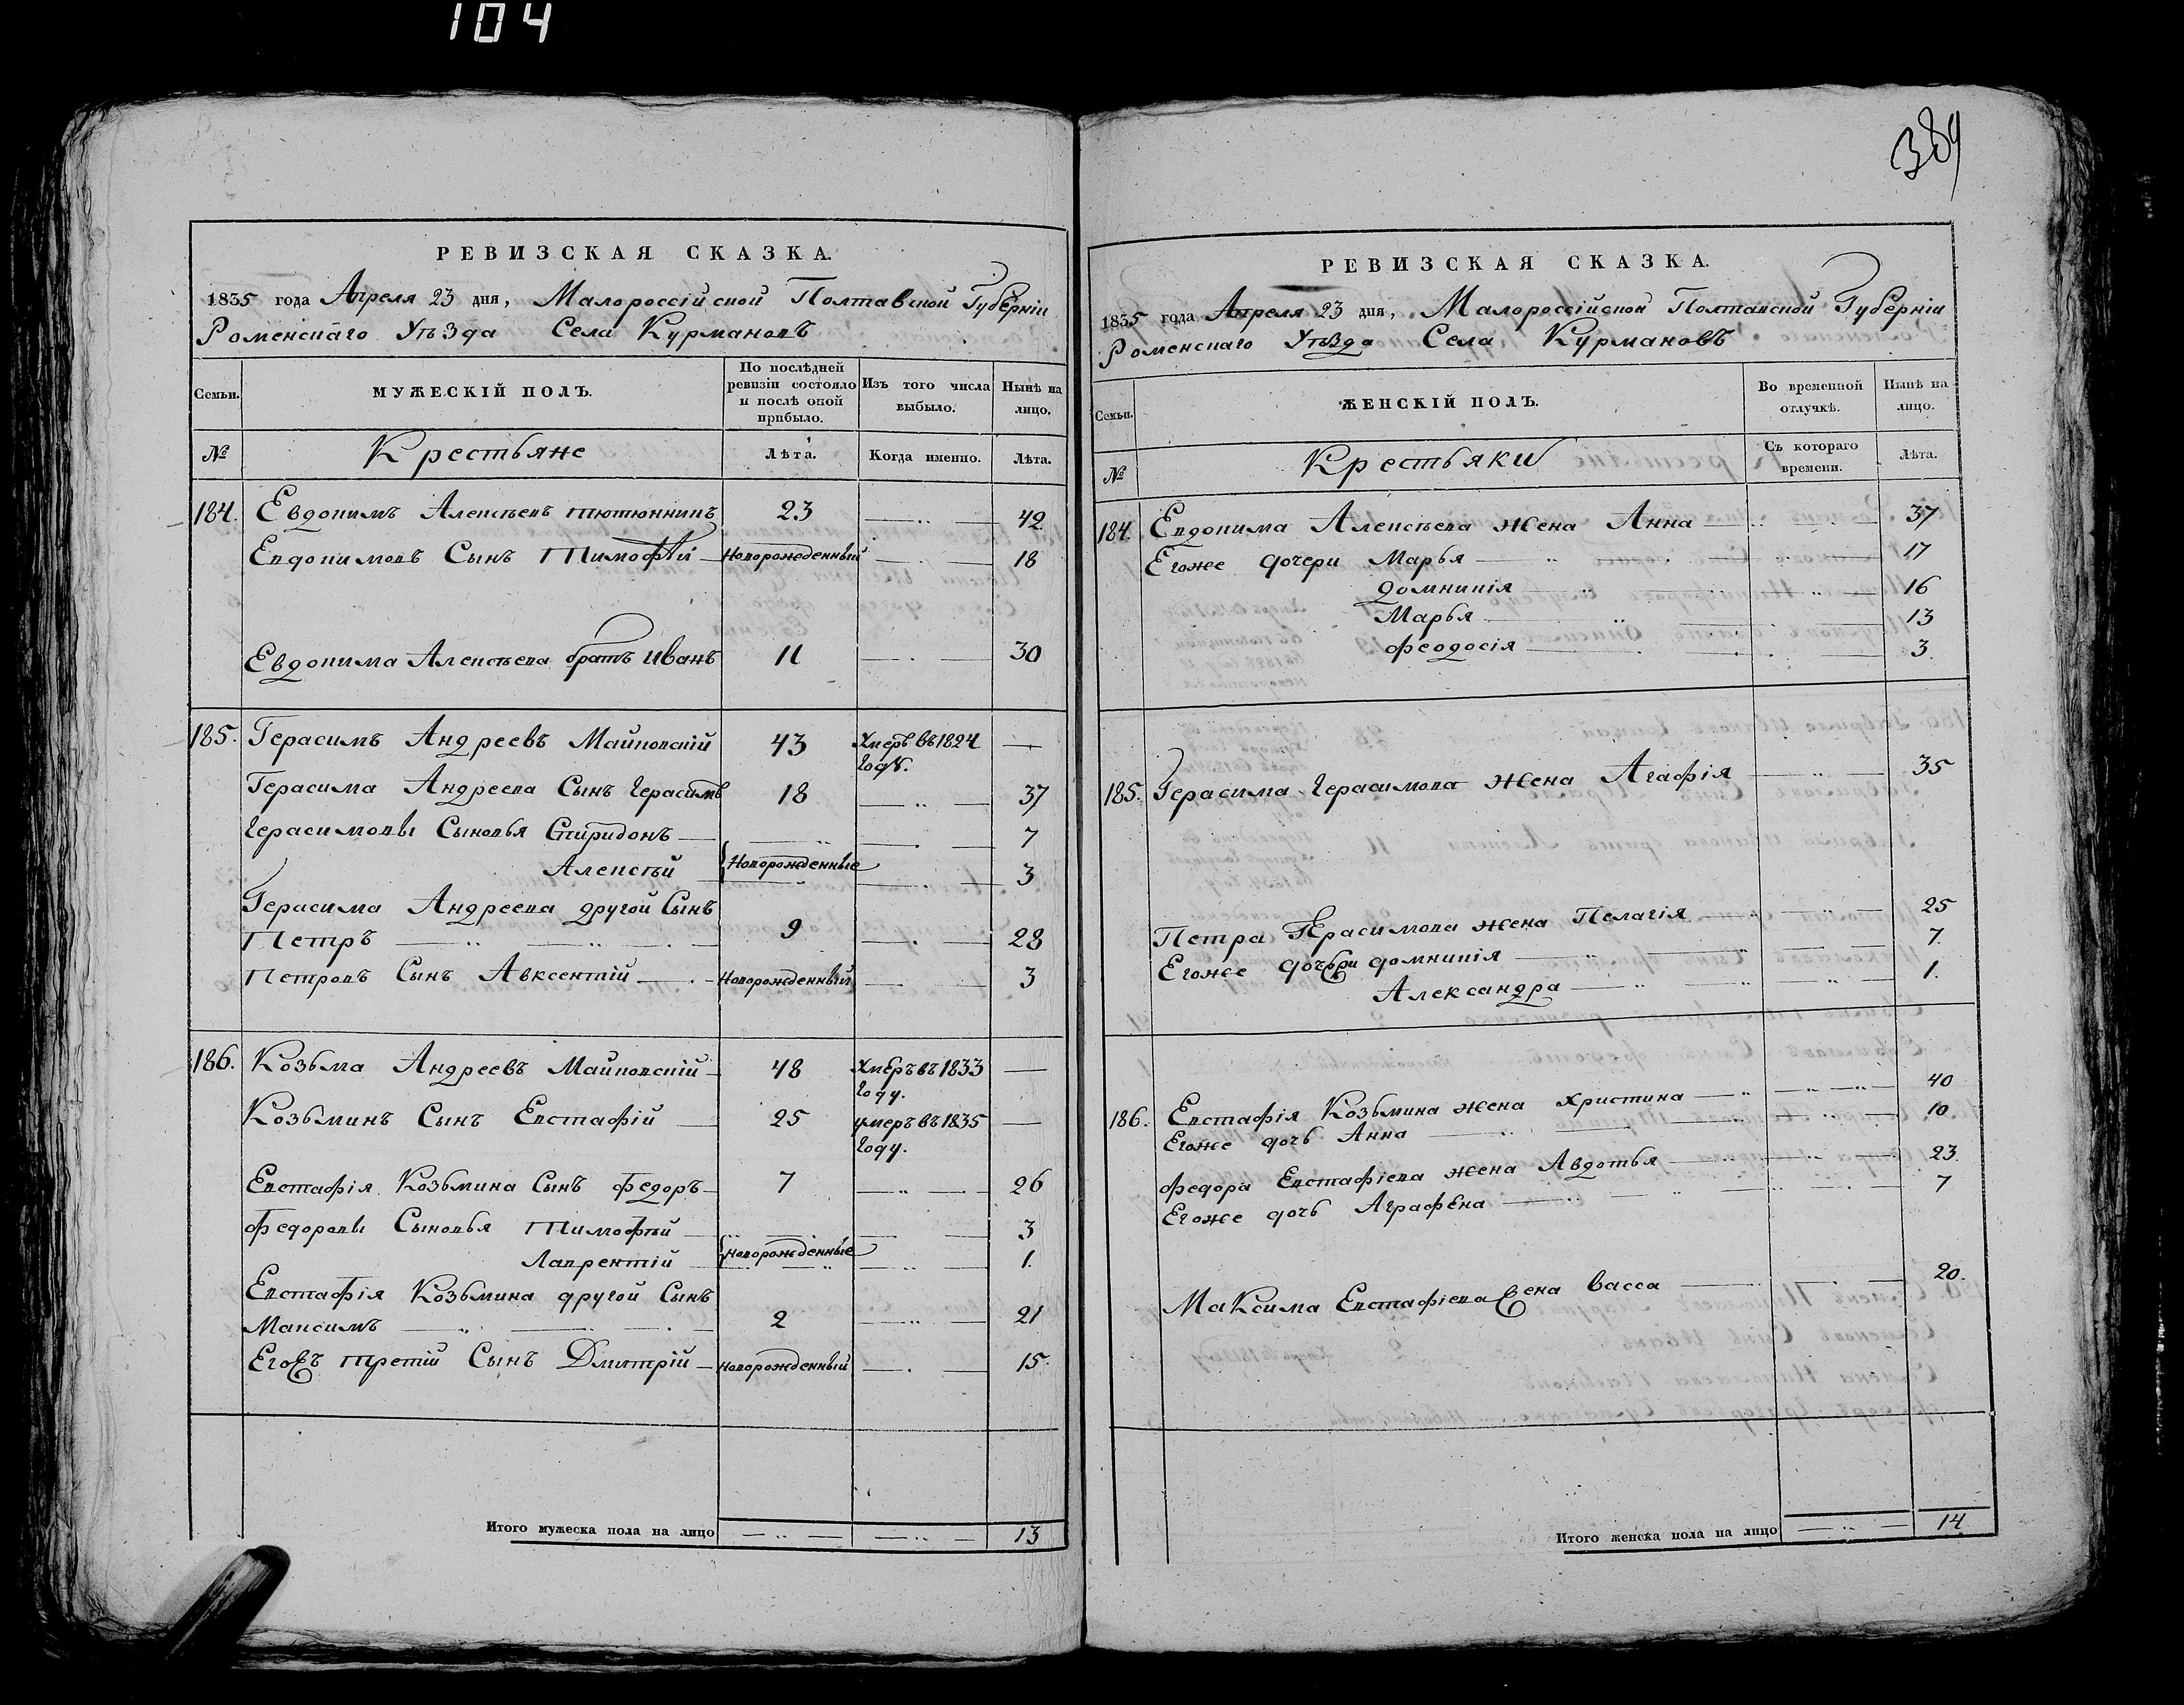 104
РЕВИЗСКАЯ СКАЗКА.
1835 года Апреля 23 дня, Малороссійской Полтавской Губерніи
Роменскаго Уѣзда Села Курмановъ
Семьи.
МУЖЕСКІЙ ПОЛЪ.
По послѣдней ревизіи состояло и послѣ оной прибыло.
Изъ того числа выбыло.
Нынѣ на лицо.
№
Крестьяне
Лѣта.
Когда именно.
Лѣта.
184. Евдокимъ Алексѣевъ Тютюнникъ 23 42
Евдокимовъ Сынъ Тимофѣй Новорожденный 18
Евдокима Алексѣева братъ Иванъ 11 30
185. Герасимъ Андреевъ Майковскій 43 Умеръ въ 1824
году.
Герасима Андреева Сынъ Герасимъ 18 37
Герасимовы Сыновья Спиридонъ 7
Новорожденные
Алексѣй 3
Герасима Андреева другой Сынъ
Петръ 9 28
Петровъ Сынъ Авксентій Новорожденный 3
186. Козьма Андреевъ Майковскій 48 Умеръ въ 1833
году.
Козьминъ Сынъ Евстафій 25 умеръ въ 1835
году.
Евстафія Козьмина Сынъ Федоръ 7 26
Федоровы Сыновья Тимофѣй 3
Новорожденные
Лаврентій 1.
Евстафія Козьмина другой Сынъ
Максимъ 2 21
Егожъ третій Сынъ Дмитрій Новорожденный 15.
Итого мужеска пола на лицо 13
384
РЕВИЗСКАЯ СКАЗКА.
1835 года Апреля 23 дня, Малороссійской Полтавской Губерніи
Роменскаго Уѣзда Села Курмановъ
Семьи.
ЖЕНСКІЙ ПОЛЪ.
Во временной отлучкѣ.
Нынѣ на лицо.
№
Крестьянки
Съ котораго времени.
Лѣта.
184. Евдокима Алексѣева жена Анна 37
Егоже дочери Марья 17
Домникія 16
Марья 13
Феодосія 3.
185. Герасима Герасимова жена Агафія 35
Петра Герасимова жена Пелагія 25
Егоже дочери Домникія 7.
Александра 1.
186. Евстафія Козьмина жена Христина 40
Егоже дочь Анна 10
Федора Евстафіева жена Авдотья 23.
Егоже дочь Аграфена 7
Максима Евстафіева жена Васса 20.
Итого женска пола на лицо 14